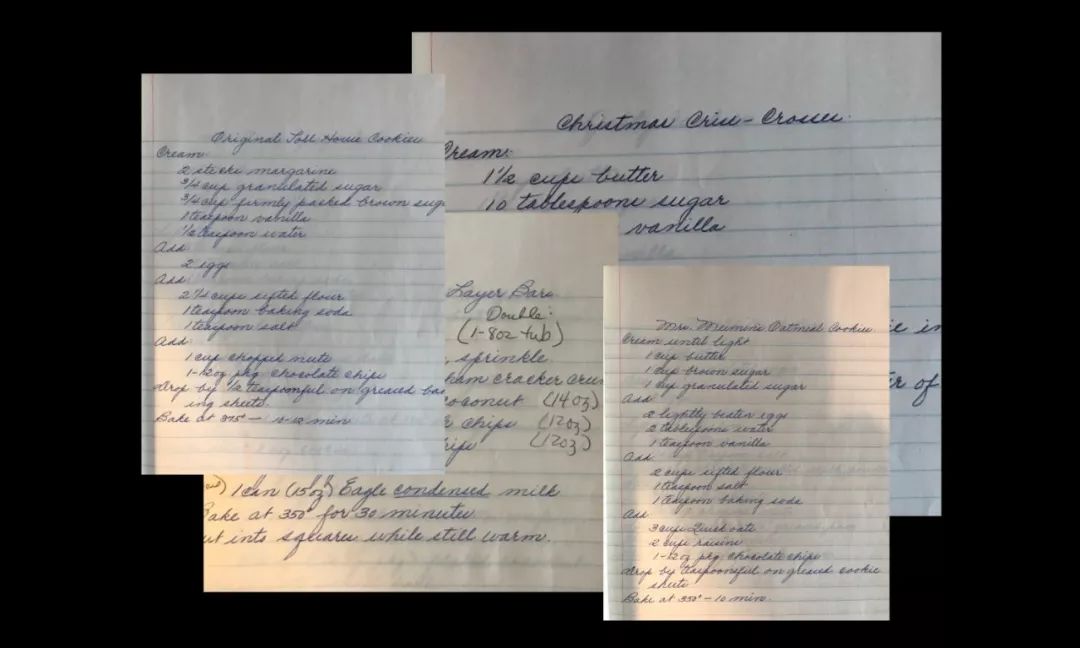 Original Toll House Cookies
Cream:
2 sticks margarine
3/4 cup granulated sugar
3/4 cup firmly packed brown sug
1 teaspoon vanilla
1/2 teaspoon water
Add:
2 eggs
Add:
2 1/4 cups sifted flour
1 teaspoon baking soda
1 teaspoon salt
Add:
1 cup chopped nuts
1-12oz pkg chocolate chips
Drop by 1/2 teaspoonful on greased bak
ing sheets.
Bake at 375° - 10-12 min
Christmas Criss-Crosses
Cream:
1 1/2 cups butter
10 tablespoons sugar
vanilla
in
of
Layer Bars
Double:
(1-8oz tub)
sprinkle
ham cracker crum
oconut (14oz)
chips (12oz)
hips (12oz)
1 can (15oz) Eagle condensed milk
Bake at 350° for 30 minutes
ut into squares while still warm.
Mrs. Oatmeal Cookies
Cream until light
1 cup butter
1 cup brown sugar
1 cup granulated sugar
Add:
2 lightly beaten eggs
2 tablespoons water
1 teaspoon vanilla
Add:
2 cups sifted flour
1 teaspoon salt
1 teaspoon baking soda
Add:
3 cups Quick oats
2 cups raisins
1-12oz pkg chocolate chips
Drop by teaspoonful on greased cookie
sheets
Bake at 350° - 10 min.